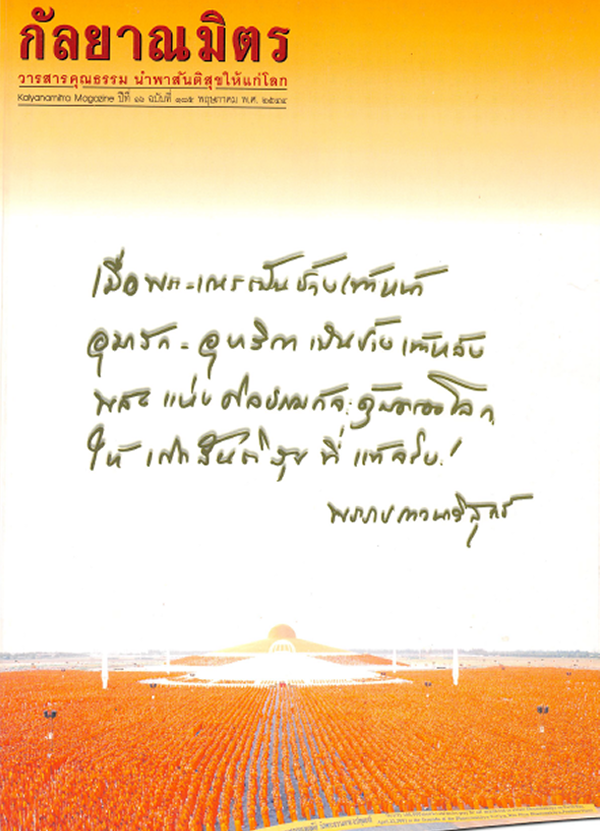 กัลยาณมิตร
วารสารคุณธรรม นำพาสันติสุขให้แก่โลก
Kalyanamitra Magazine ปีที่ ๑๖ ฉบับที่ ๑๘๕ พฤษภาคม พ.ศ. ๒๕๔๔
เมื่อพระเถรเป็นช้างเท้าหน้า
อุบาสก-อุบาสิกา เป็นช้างเท้าหลัง
พลัง แห่ง ศีลธรรม
ให้ เกิดสันติสุข ที่ แท้จริง!
พระราชภาวนาวิสุทธิ์